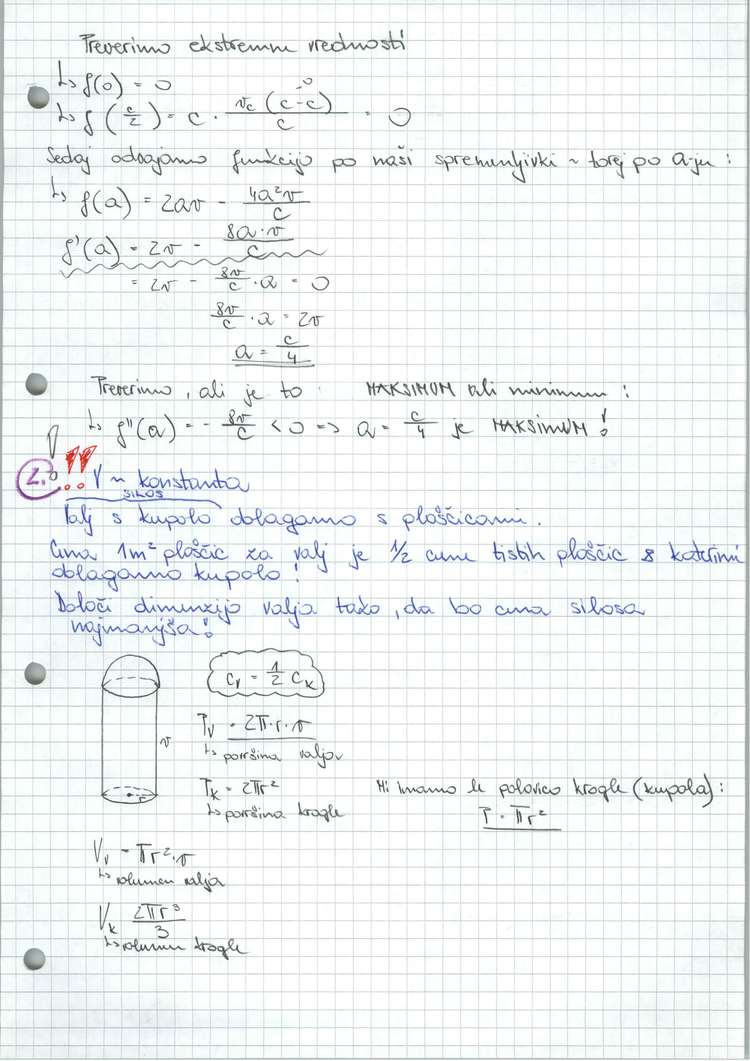 Preverimo ekstremne vrednosti
↳ f(0) = 0
↳ f(c/2) = c · vc (c-c)→0 / c = 0
Sedaj odvajamo funkcijo po naši spremenljivki ~ torej po a-ju :
↳ f(a) = 2av - 4a²v/c
f'(a) = 2v - 8a·v/c
= 2v - 8v/c · a = 0
8v/c · a = 2v
a = c/4
Preverimo, ali je to MAKSIMUM ali minimum :
↳ f''(a) = - 8v/c < 0 => a = c/4 je MAKSIMUM !
2. !! V ~ konstanta
SILOS
Valj s kupolo oblagamo s ploščicami.
Cena 1m² ploščic za valj je 1/2 cene tistih ploščic s katerimi
oblagamo kupolo !
Določi dimenzijo valja tako, da bo cena silosa
najmanjša !
Cv = 1/2 Ck
v
r
Pv = 2π·r·v
↳ površina valjov
Pk = 2πr²
↳ površina krogle
Mi imamo le polovico krogle (kupola) :
P = πr²
Vv = πr²·v
↳ volumen valja
Vk 2πr³/3
↳ volumen krogle